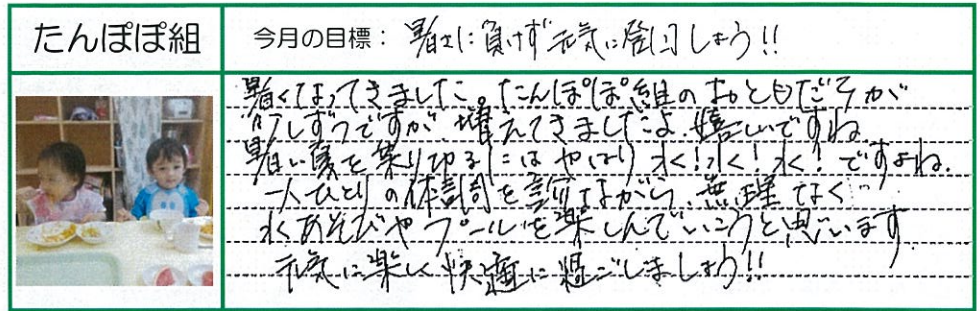 たんぽぽ組
今月の目標：暑さに負けず元気に登園しましょう!!
暑くなってきました。たんぽぽ組のおともだちが
少しずつですが増えてきましたよ。嬉しいですね。
暑い夏を乗り切るにはやはり水!水!水!ですよね。
一人ひとりの体調を 無理なく
水あそびやプールを楽しんでいこうと思います。
元気に楽しく快適に過ごしましょう!!